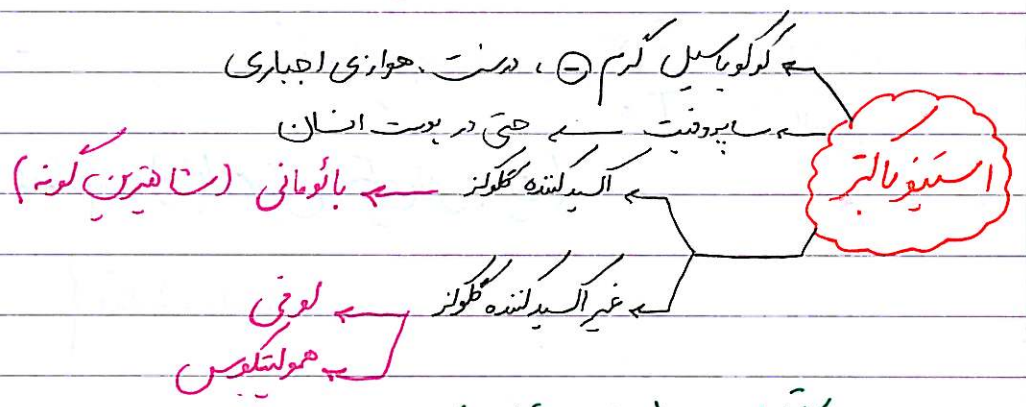 کوکوباسیل گرم ⊖ ، درشت ، هوازی اجباری
ساپروفیت ← حتی در پوست انسان
استینوباکتر
اکسیدکننده گلوکز ← بائومانی (شایعترین گونه)
غیر اکسیدکننده گلوکز ← لوفی
همولیتیکوس